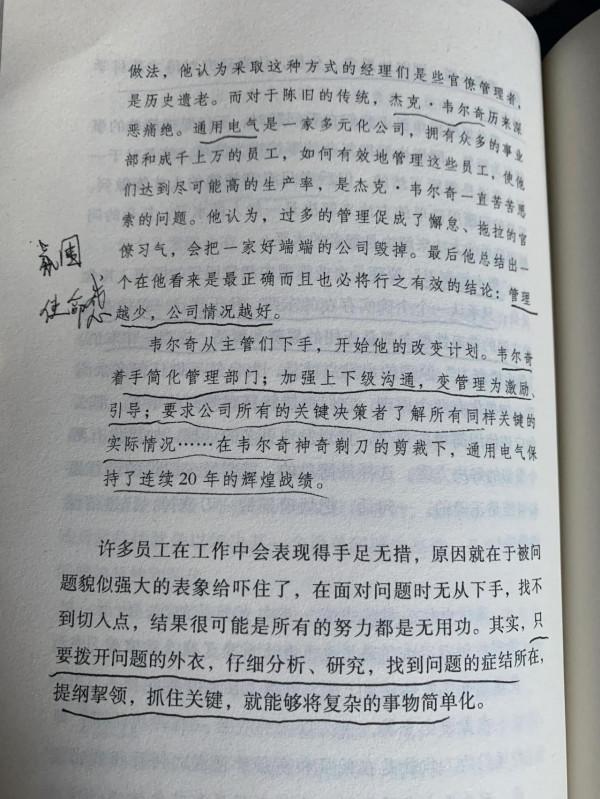 做法，他认为采取这种方式的经理们是些官僚管理者，
是历史遗老。而对于陈旧的传统，杰克·韦尔奇历来深
恶痛绝。通用电气是一家多元化公司，拥有众多的事业
部和成千上万的员工，如何有效地管理这些员工，使他
们达到尽可能高的生产率，是杰克·韦尔奇一直苦苦思
索的问题。他认为，过多的管理促成了懈怠、拖拉的官
僚习气，会把一家好端端的公司毁掉。最后他总结出一
个在他看来是最正确而且也必将行之有效的结论：管理
越少，公司情况越好。
氛围
使命感
韦尔奇从主管们下手，开始他的改变计划。韦尔奇
着手简化管理部门；加强上下级沟通，变管理为激励、
引导；要求公司所有的关键决策者了解所有同样关键的
实际情况……在韦尔奇神奇剃刀的剪裁下，通用电气保
持了连续20年的辉煌战绩。
许多员工在工作中会表现得手足无措，原因就在于被问
题貌似强大的表象给吓住了，在面对问题时无从下手，找不
到切入点，结果很可能是所有的努力都是无用功。其实，只
要拨开问题的外衣，仔细分析、研究，找到问题的症结所在，
提纲挈领，抓住关键，就能够将复杂的事物简单化。